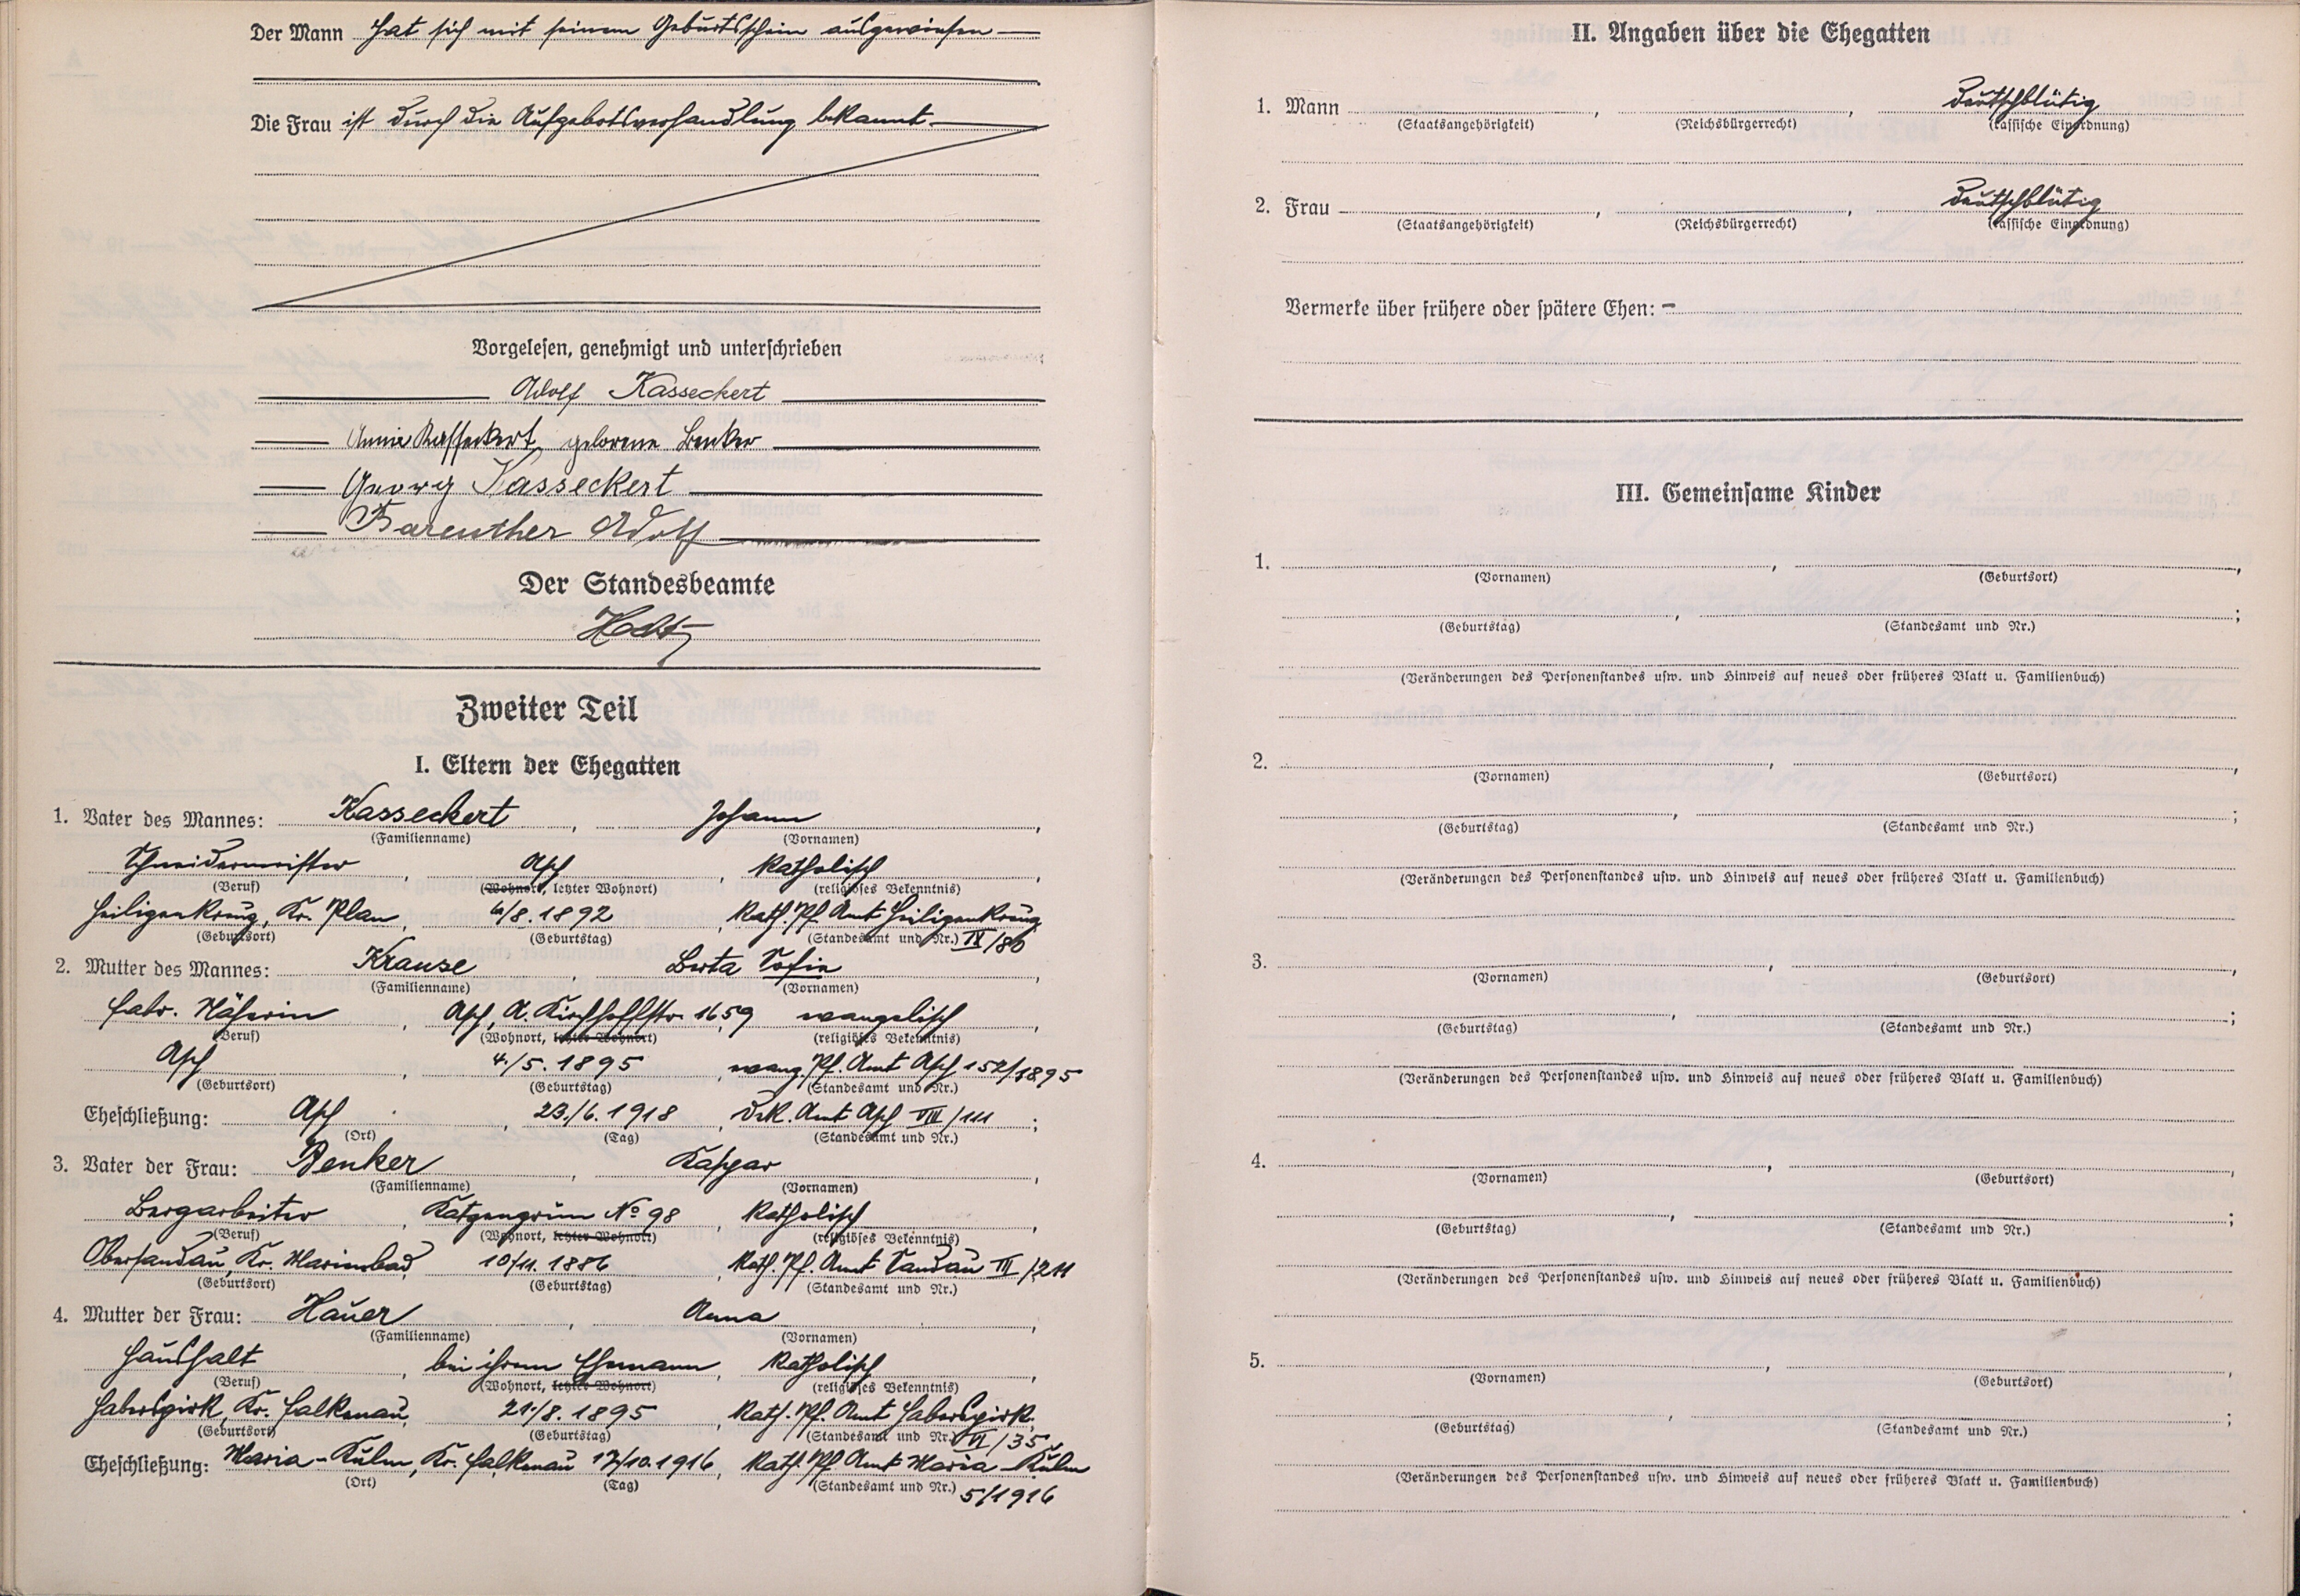 Der Mann hat sich mit seinem Geburtsschein ausgewiesen
Die Frau ist durch die Aufgebotsverhandlung bekannt.
Vorgelesen, genehmigt und unterschrieben
Adolf Kasseckert
Annie Kasseckert, geborene Benker
Georg Kasseckert
Bareuther Adolf
Der Standesbeamte
Zweiter Teil
I. Eltern der Ehegatten
1. Vater des Mannes: Kasseckert, Johann,
(Familienname) (Vornamen)
Schneidermeister, Asch, katholisch,
(Beruf) (Wohnort, letzter Wohnort) (religiöses Bekenntnis)
Heiligenkreuz, Kr. Plan, /8. 1892, Kath. Pf. Amt Heiligenkreuz
(Geburtsort) (Geburtstag) (Standesamt und Nr.) IV/80
2. Mutter des Mannes: Krause, Berta Sofie,
(Familienname) (Vornamen)
Fabr. Näherin, Asch, A. Kirchhoffstr. 1659 evangelisch,
(Beruf) (Wohnort, letzter Wohnort) (religiöses Bekenntnis)
Asch, 4./5. 1895, evang. Pf. Amt Asch 152/1895
(Geburtsort) (Geburtstag) (Standesamt und Nr.)
Eheschließung: Asch, 23./6. 1918, Dek. Amt Asch VIII/111;
(Ort) (Tag) (Standesamt und Nr.)
3. Vater der Frau: Benker, Kaspar,
(Familienname) (Vornamen)
Bergarbeiter, Katzengrün No 98, katholisch,
(Beruf) (Wohnort, letzter Wohnort) (religiöses Bekenntnis)
Obersandau, Kr. Marienbad, 10/11. 1886, Kath. Pf. Amt Sandau III/211
(Geburtsort) (Geburtstag) (Standesamt und Nr.)
4. Mutter der Frau: Hauer, Anna,
(Familienname) (Vornamen)
Haushalt, bei ihrem Ehemann, katholisch,
(Beruf) (Wohnort, letzter Wohnort) (religiöses Bekenntnis)
Haberspirk, Kr. Falkenau, 21./8. 1895, Kath. Pf. Amt Haberspirk,
(Geburtsort) (Geburtstag) (Standesamt und Nr.) VI/35
Eheschließung: Maria-Kulm, Kr. Falkenau 17/10. 1916, Kath. Pf. Amt Maria-Kulm
(Ort) (Tag) (Standesamt und Nr.) 5/1916
II. Angaben über die Ehegatten
1. Mann , , deutschblütig
(Staatsangehörigkeit) (Reichsbürgerrecht) (rassische Einordnung)
2. Frau , , deutschblütig
(Staatsangehörigkeit) (Reichsbürgerrecht) (rassische Einordnung)
Vermerke über frühere oder spätere Ehen: –
III. Gemeinsame Kinder
1. , ,
(Vornamen) (Geburtsort)
, ;
(Geburtstag) (Standesamt und Nr.)
(Veränderungen des Personenstandes usw. und Hinweis auf neues oder früheres Blatt u. Familienbuch)
2. , ,
(Vornamen) (Geburtsort)
, ;
(Geburtstag) (Standesamt und Nr.)
(Veränderungen des Personenstandes usw. und Hinweis auf neues oder früheres Blatt u. Familienbuch)
3. , ,
(Vornamen) (Geburtsort)
, ;
(Geburtstag) (Standesamt und Nr.)
(Veränderungen des Personenstandes usw. und Hinweis auf neues oder früheres Blatt u. Familienbuch)
4. , ,
(Vornamen) (Geburtsort)
, ;
(Geburtstag) (Standesamt und Nr.)
(Veränderungen des Personenstandes usw. und Hinweis auf neues oder früheres Blatt u. Familienbuch)
5. , ,
(Vornamen) (Geburtsort)
, ;
(Geburtstag) (Standesamt und Nr.)
(Veränderungen des Personenstandes usw. und Hinweis auf neues oder früheres Blatt u. Familienbuch)